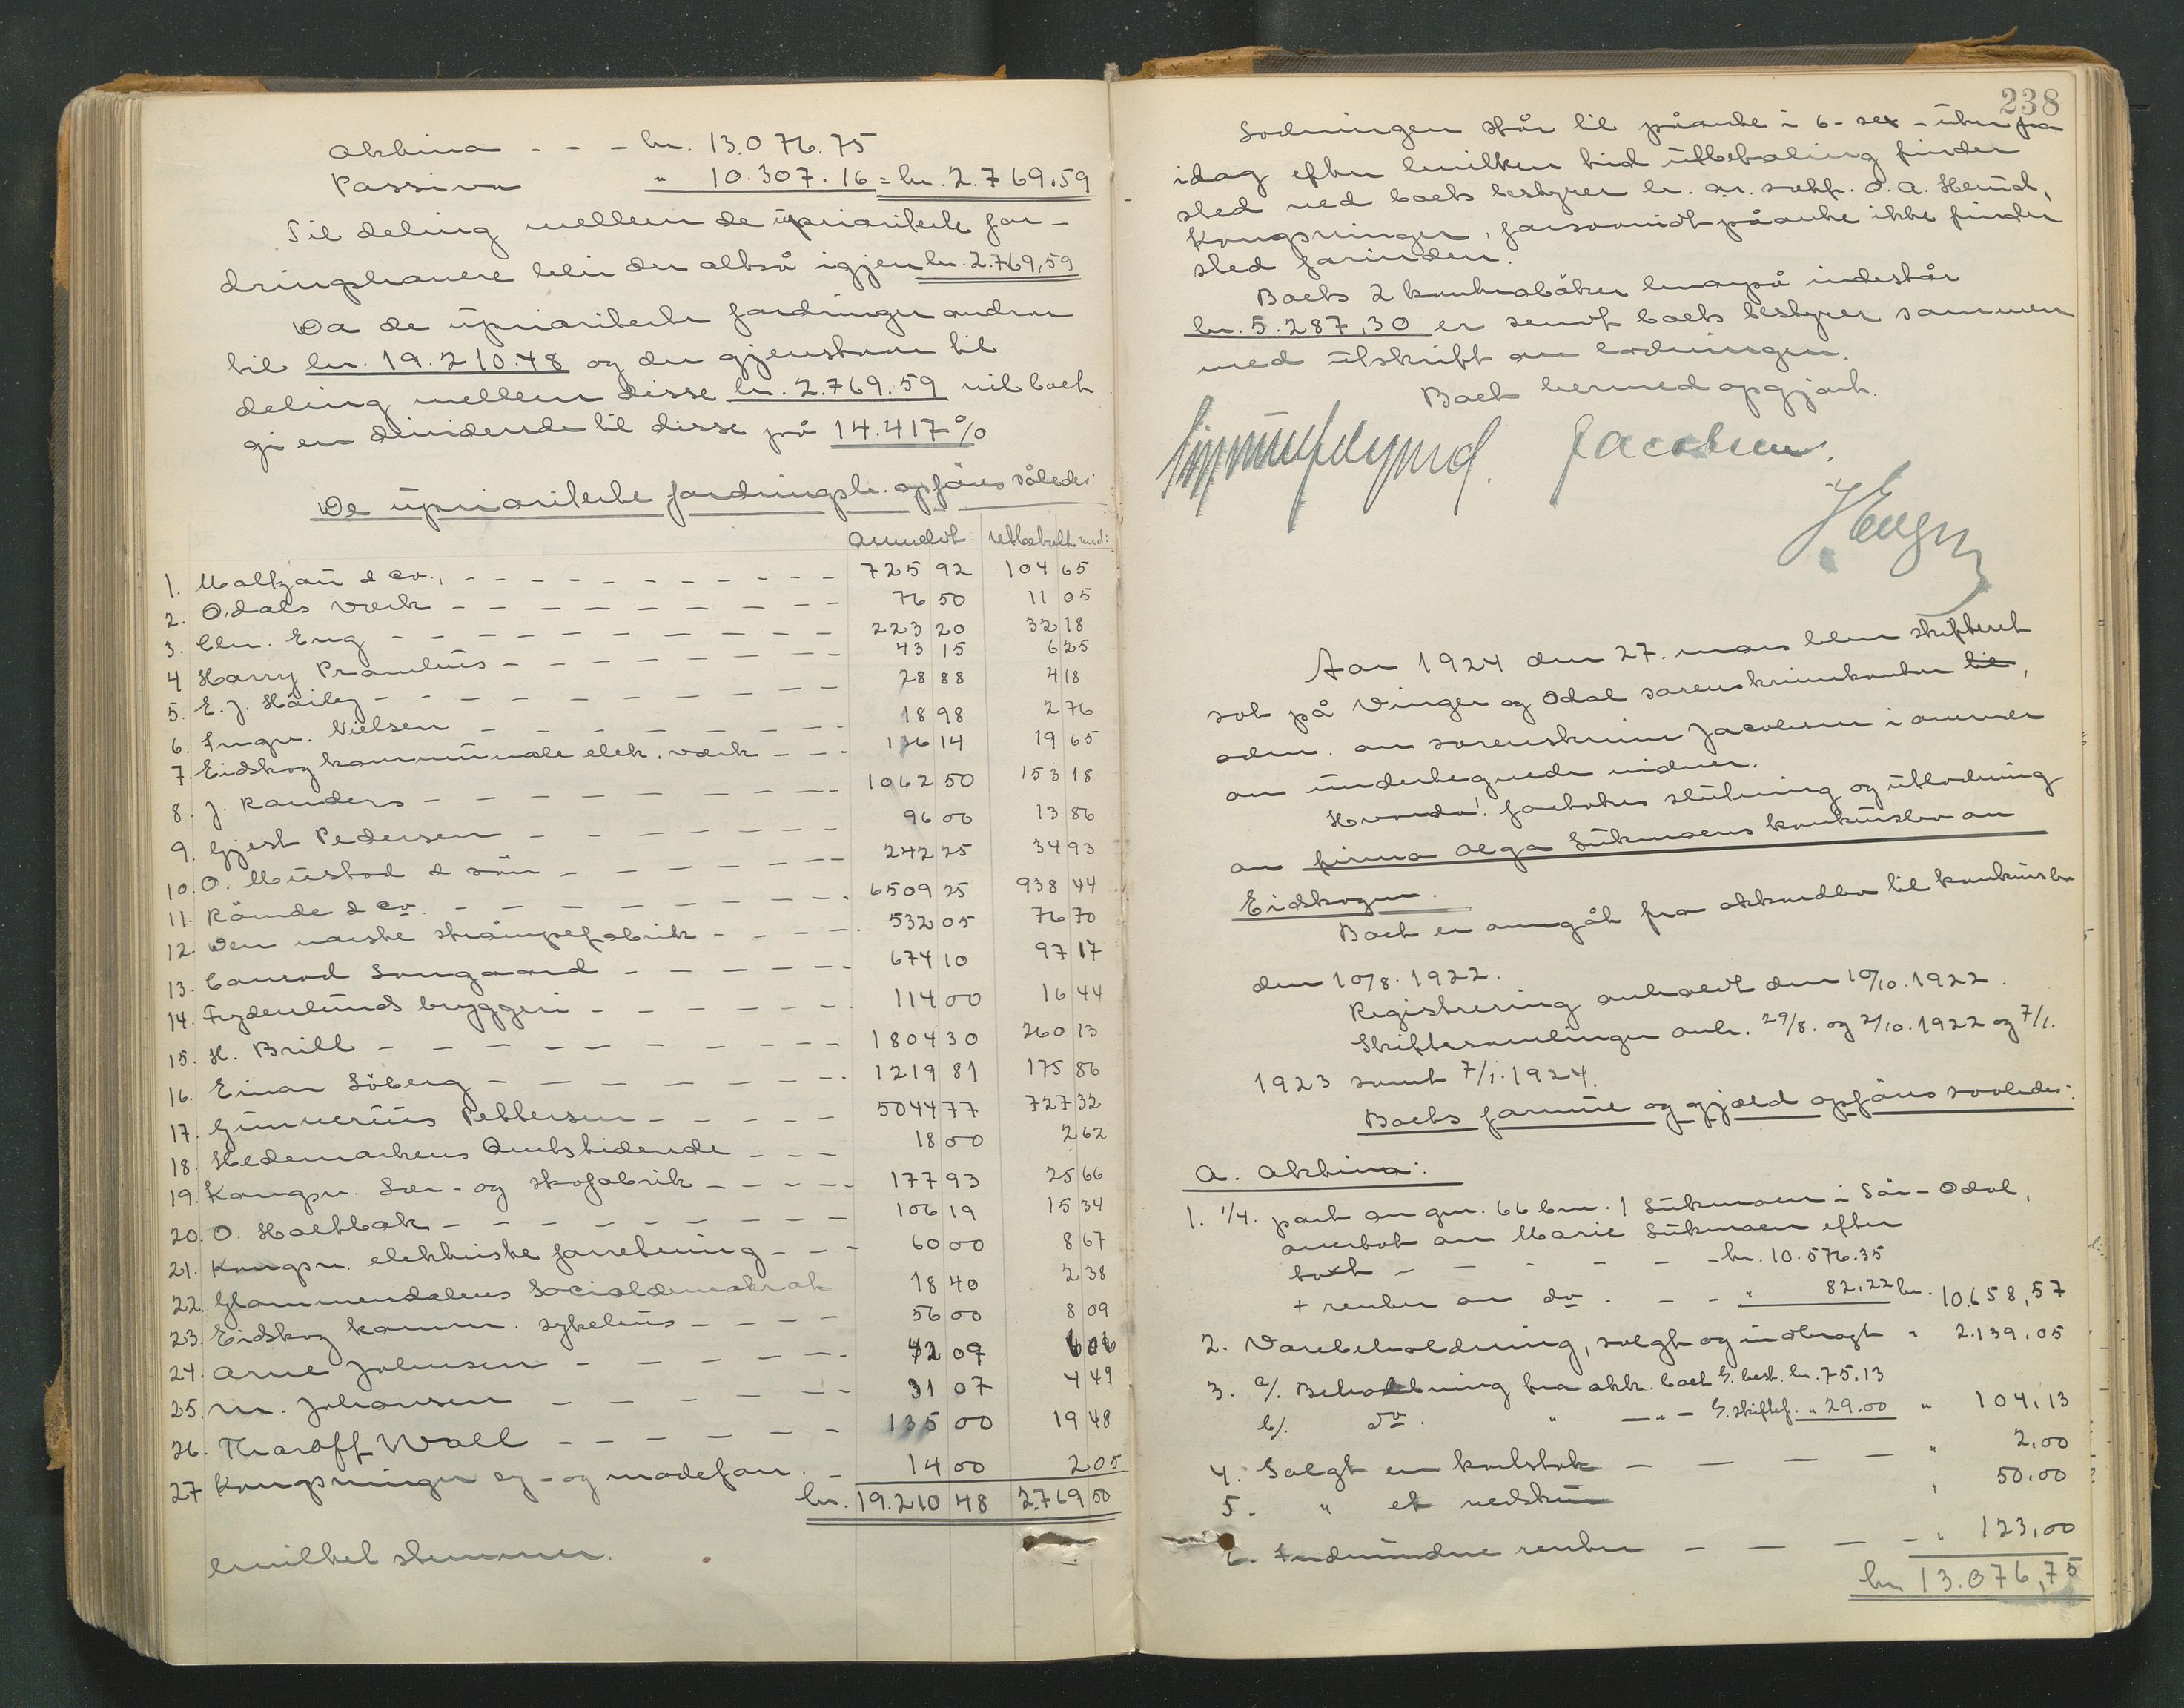 Aktiva - - - kr. 13.076.75
Passiva " 10.307.16 = kr. 2.769,59
Til deling mellem de uprioriterte for-
dringshavere blir der altså igjen kr. 2.769,59
Da de uprioriterte fordringer andrar
til kr. 19.210.48 og der gjenstaar til
deling mellem disse kr. 2.769.59 vil boet
gi en dividende til disse på 14.417 %
De uprioriterte fordringsh. opføres således:
Anmeldt utbetalt med:
1. Maltzau & co., - - - 725 92 104 65
2. Odals værk - - - 76 50 11 05
3. Chr. Eng - - - 223 20 32 18
4 Harry Pramhus - - - 43 15 6 25
5. E. J. Häiby - - - 28 88 4 18
6. Ingv. Nielsen - - - 18 98 2 76
7. Eidskog kommunale elek. værk - - - 136 14 19 65
8. J. Randers - - - 1062 50 153 18
9. Gjest Pedersen - - - 96 00 13 86
10. O. Mustad & søn - - - 242 25 34 93
11. Rånde & co. - - - 6509 25 938 44
12. Den norske strømpefabrik - - - 532 05 76 70
13. Conrad Langaard - - - 674 10 97 17
14. Frydenlunds bryggeri - - - 114 00 16 44
15. H. Brill - - - 1804 30 260 13
16. Einar Söberg - - - 1219 81 175 86
17. Gunnerius Pettersen - - - 5044 77 727 32
18. Hedemarkens Amtstidende - - - 18 00 2 62
19. Kongsv. Lær- og skofabrik - - - 177 93 25 66
20. O. Holtbak - - - 106 19 15 34
21. Kongsv. elektriske forretning - - - 60 00 8 67
22. Glommendalens Socialdemokrat 18 40 2 38
23. Eidskog komm. sykehus - - - 56 00 8 09
24. Arne Johnsen - - - 42 09 6 06
25. M. Johansen - - - 31 07 4 49
26. Tharoff Wall - - - 135 00 19 48
27 Kongsvinger sy- og motefor. - 14 00 2 05
kr. 19.210 48 2.769 50
hvilket stemmer.
238
Lodningen står til påanke i 6-sex-uker fra
idag efter hvilken tid utbetaling finder
sted ved boets bestyrer hr. o.r. sakf. O. A. Herud,
Kongsvinger, forsaavidt påanke ikke finder
sted forinden.
Boets 2 kontrabøker hvorpå indestår
kr. 5.287,30 er sendt boets bestyrer sammen
med utskrift av lodningen.
Boet hermed opgjort.
Jacobsen.
Aar 1924 den 27. mars blev skifteret
sat på Vinger og Odal sorenskriverkontor til,
adm. av sorenskriver Jacobsen i nærvær
av undertegnede vidner.
Hvorda! foretokes slutning og utlodning
av firma Olga Lukmoens konkursbo av
Eidskogen.
Boet er overgåt fra akkordbo til konkursbo
den 10/8. 1922.
Registrering avholdt den 10/10. 1922.
Skiftesamlinger avh. 29/8. og 2/10. 1922 og 7/1.
1923 samt 7/1. 1924.
Boets formue og gjæld opføres saaledes:
A. Aktiva:
1. 1/4. part av gn. 66 bn. 1 Lukmoen i Sør-Odal,
overtat av Marie Lukmoen efter
takst - - - kr. 10.576.35
+ renter av do. - - " 82,22 kr. 10.658,57
2. Varebeholdning, solgt og indbragt " 2.139.05
3. a/. Beholdning fra akk. boet G. best. kr. 75.13
b/. do. " - " - G. skiftef. " 29.00 " 104.13
4. Solgt en kortstok - - - " 2,00
5. " et vedskur " 50.00
6. Indvundne renter - - - " 123,00
kr. 13.076,75